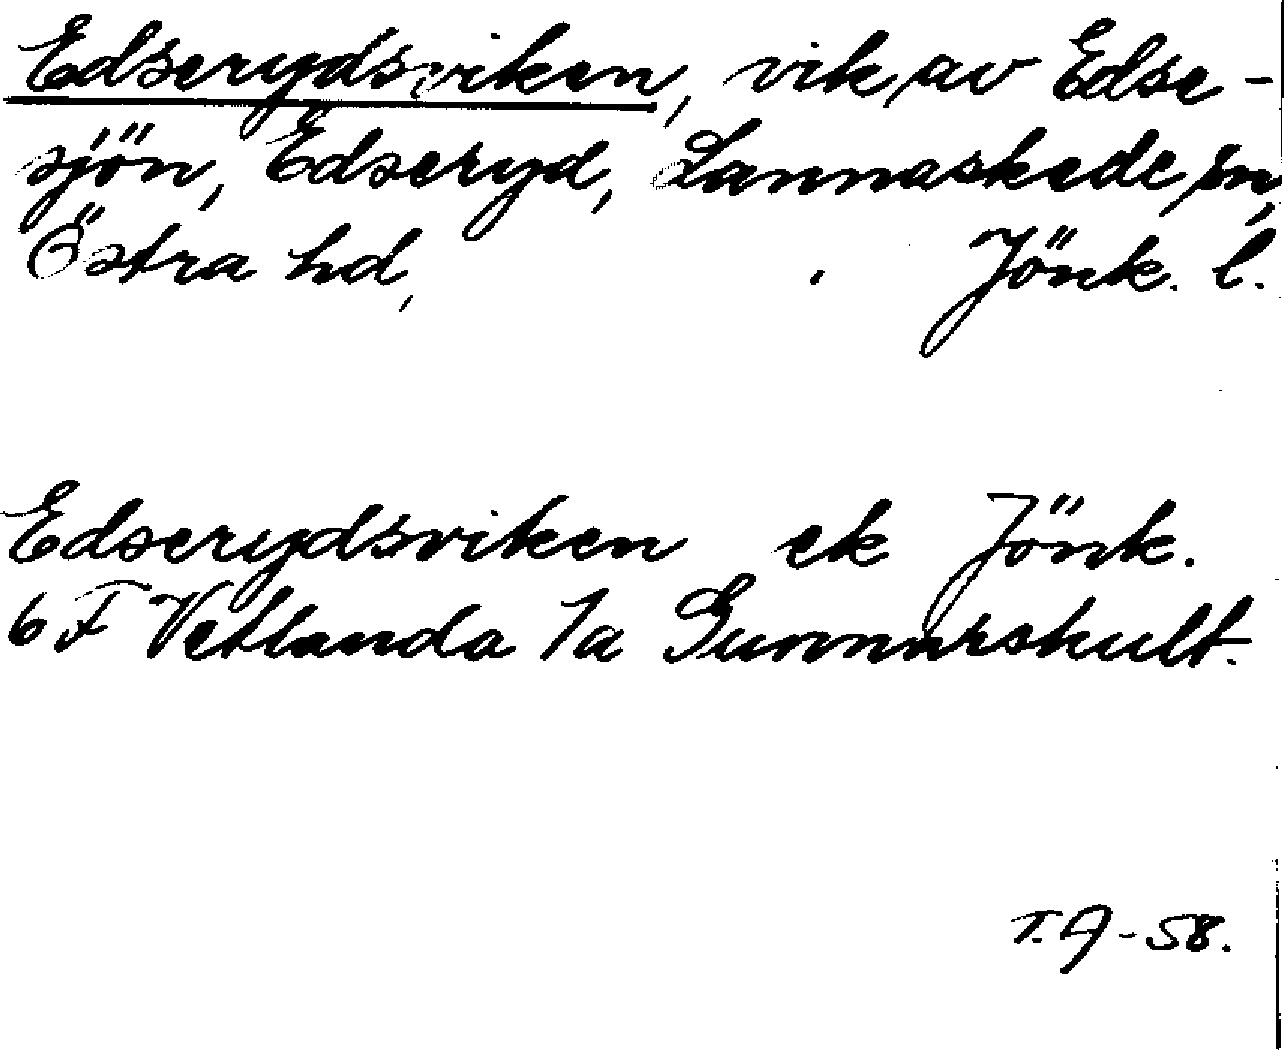 Edserydsviken, vik av Edse-
sjön, Edseryd, Lannaskede sn,
Östra hd, Jönk. l.
Edserydsviken ek Jönk.
6 F Vetlanda 1a Gunnarskult.
T.A-58.